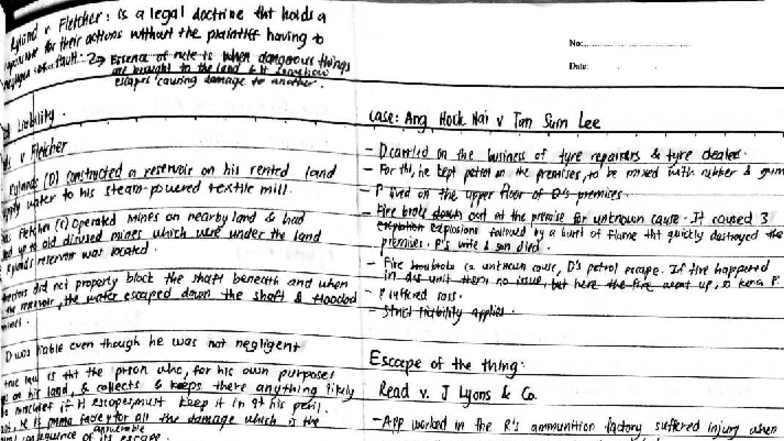 Rylund v. Fletcher: is a legal doctrine tht holds a
for their actions without the plaintiff having to
fault. Essence of rule is when dangerous things
are brought to the land & it somehow
escapes causing damage to another.
No:
Date:
Liability.
v Fletcher
Rylands (D) constructed a reservoir on his rented land
water to his steam-powered textile mill.
Fletcher (C) operated mines on nearby land & had
up to old disused mines which were under the land
Rylands reservoir was located.
did not properly block the shaft beneath and when
the reservoir, the water escaped down the shaft & flooded
mines.
D was liable even though he was not negligent
true law is tht the prson who, for his own purposes
on his land, & collects & keeps there anything likely
mischief if it escapes, must keep it in at his peril.
He is prima facie for all the damage which is the
answerable
consequence of its escape.
case: Ang Hock Hai v Tan Sum Lee
- D carried on the business of tyre repairers & tyre dealer.
- For thi, he kept petrol on the premises, to be mixed with rubber & gum
- P lived on the upper floor of D's premises.
- Fire broke out at the premise for unknown cause. It caused 3
explosions followed by a burst of flame tht quickly destroyed the
premises. P's wife & son died.
- Fire unknown cause, D's petrol escape. If fire happened
in unit no issue, but here the fire went up, P.
- P suffered loss.
- Strict liability applies.
Escape of the thing:
Read v. J Lyons & Co.
- App worked in the R's ammunition factory, suffered injury when